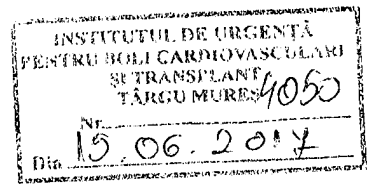 INSTITUTUL DE URGENȚĂ
PENTRU BOLI CARDIOVASCULARE
ȘI TRANSPLANT
TÂRGU MUREȘ 4050
Nr.
Din 15.06.2017